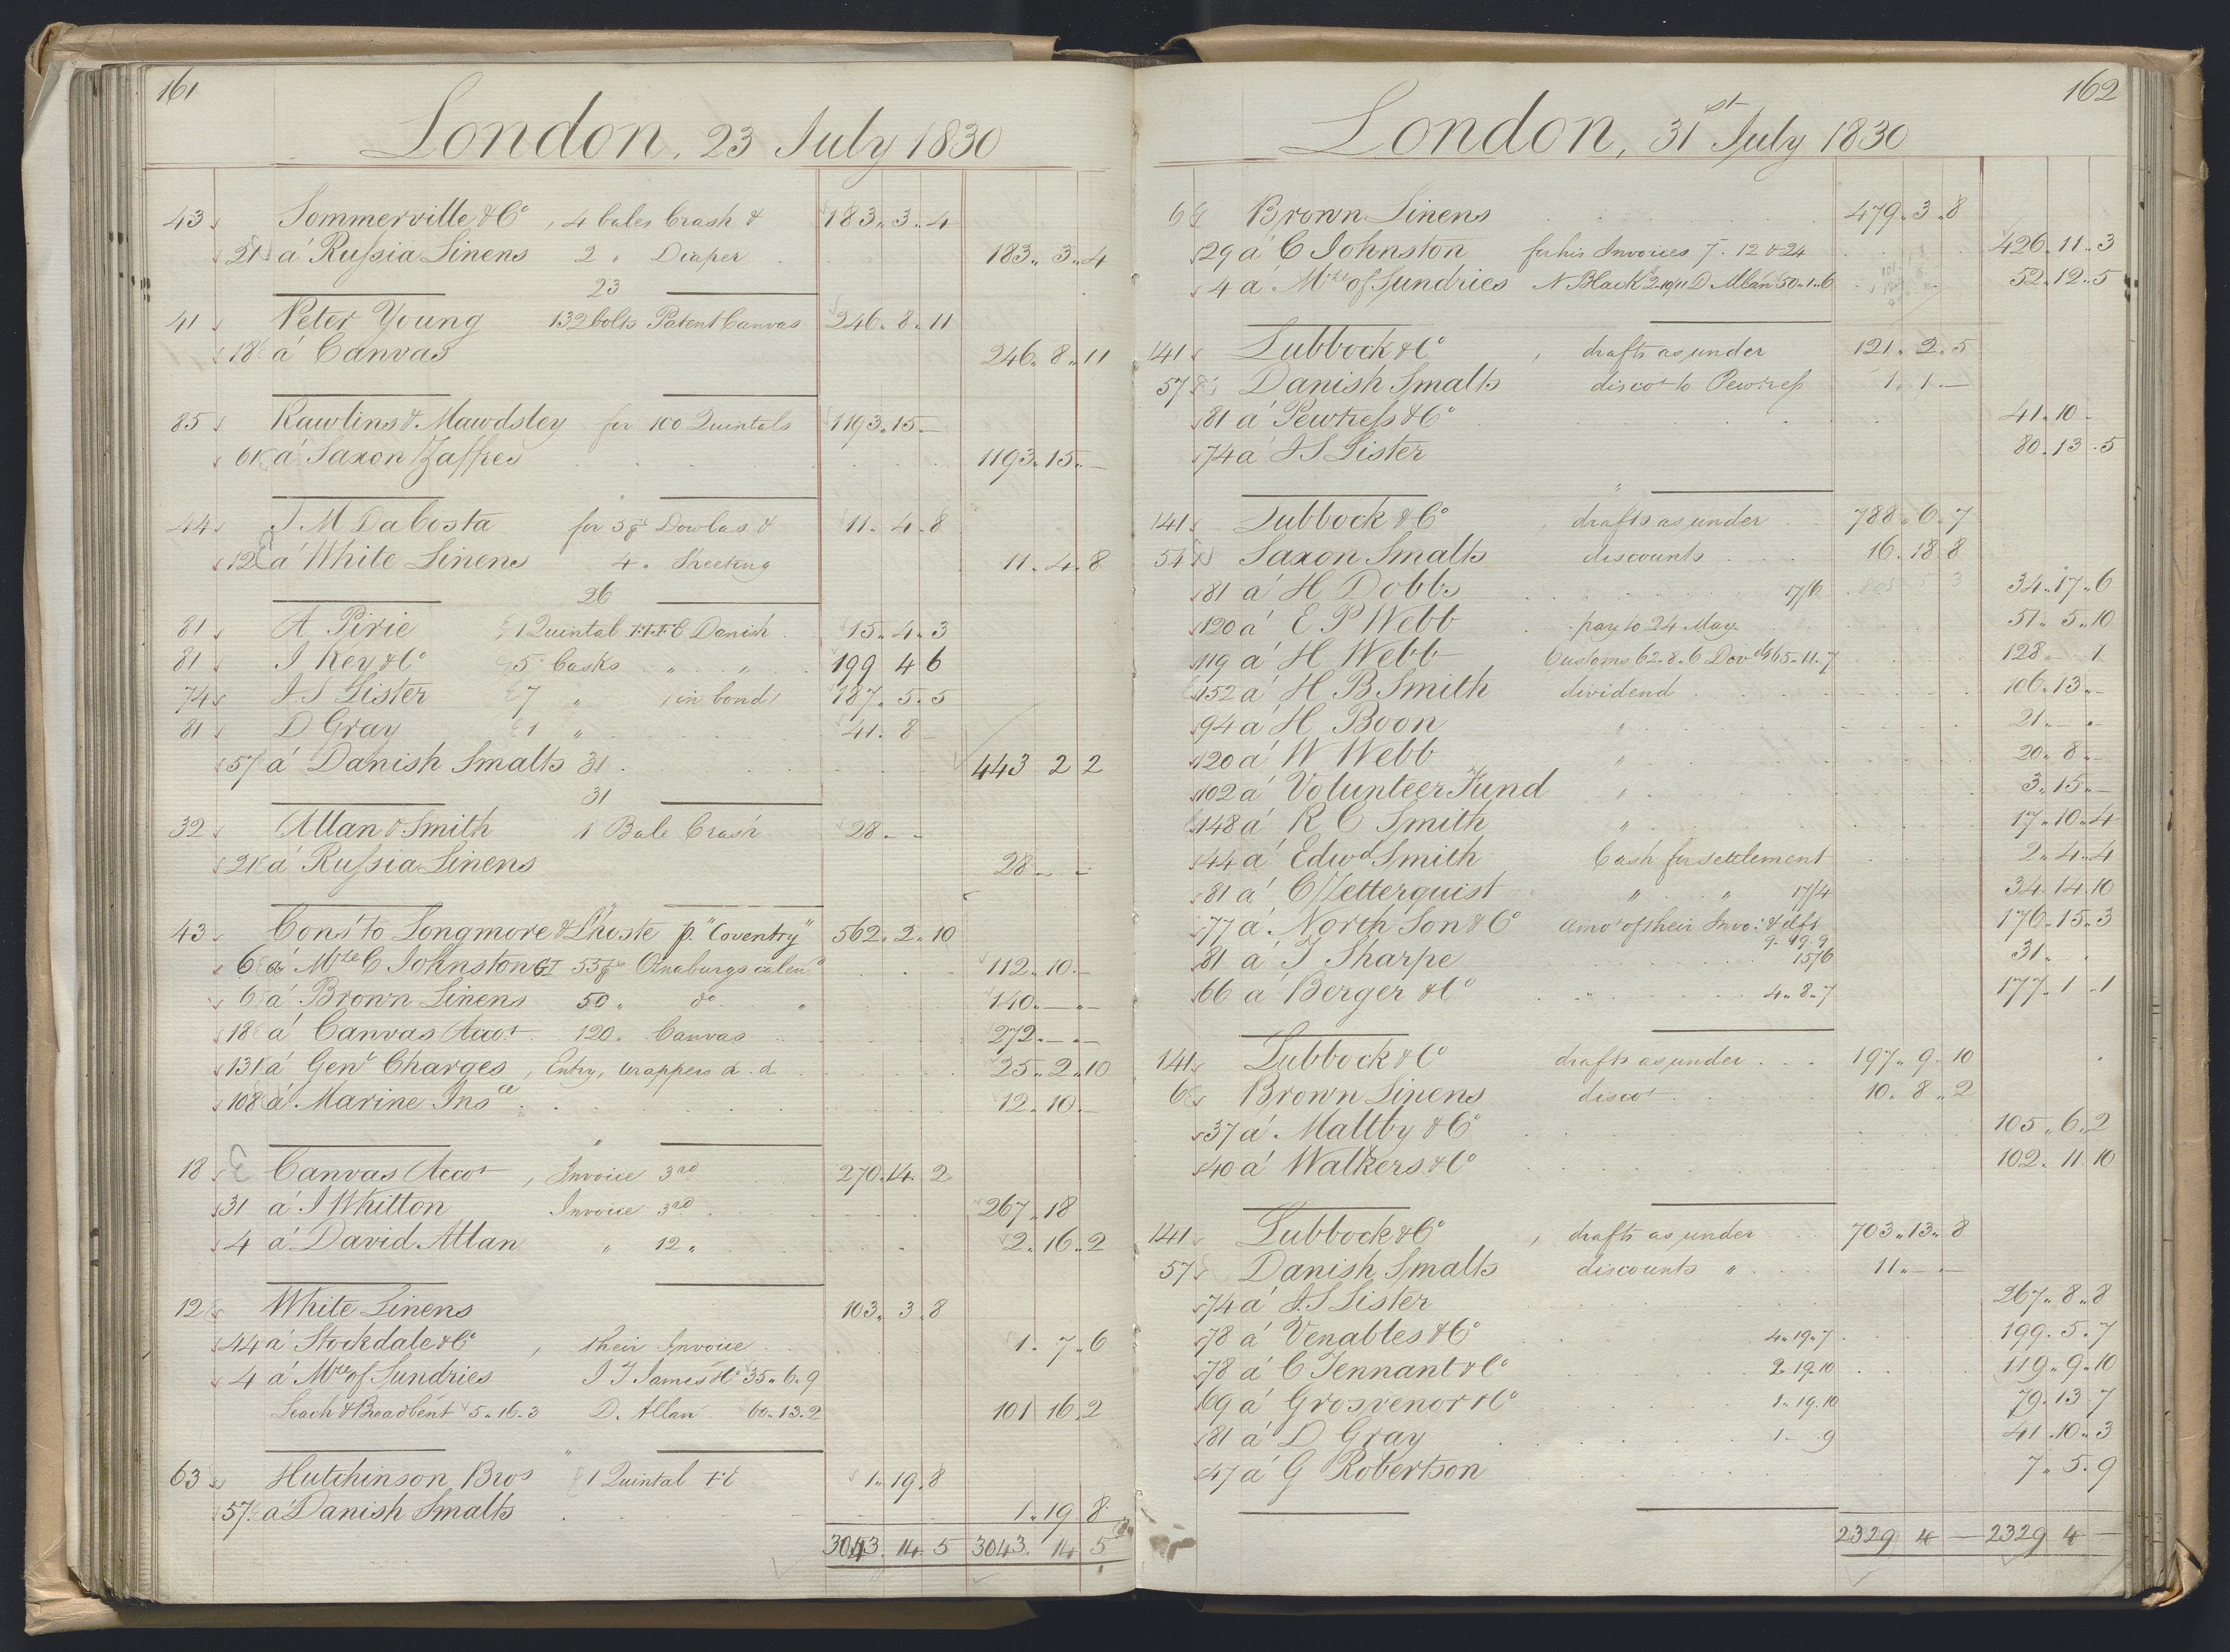 161
London, 23 July 1830
43 Sommerville & Co, 4 bales Crash & 183.. 3.. 4
21 á Russia Linens 2 " Diaper 183.. 3.. 4
23
41 Peter Young 132 bolts Patent Canvas 246.. 8.. 11
18 á Canvas 246.. 8.. 11
85 Rawlins & Mawdsley for 100 Quintals 1193.. 15.. —
61 á Saxon Zaffres 1193.. 15.. —
"
44 J. M Da Costa for 3 ps Dowlas & 11.. 4.. 8
12 á White Linens 4 " Sheeting 11.. 4.. 8
26
81 A Pirie 1 Quintal F.F.F.E Danish 15.. 4.. 3
81 J Key & Co 5 Casks " " 199 4 6
74 J. S Lister 7 " (in bond) 187.. 5.. 5
81 D Gray 1 " 41.. 8 —
57 á Danish Smalts 31 443 2 2
31
32 Allan & Smith 1 Bale Crash 28.. — —
21 á Russia Linens 28.. — —
"
43 Const to Longmore & Lhoste p. "Coventry" 562.. 2.. 10
6 á Mse C Johnston GI 55 ps Oznaburgs calend 112.. 10.. —
6 á Brown Linens 50 " do " 140.. — .. —
18 á Canvas Accot 120 " Canvas 272.. — .. —
131 á Genl Charges, Entry, wrappers &. &. 25.. 2.. 10
108 á Marine Insce 12.. 10.. —
"
18 Canvas Accot, Invoice 3rd 270.. 14.. 2
31 á J Whitton Invoice 3rd 267.. 18
4 á David Allan " 12 " 2.. 16.. 2
12 White Linens 103.. 3.. 8
44 á Stockdale & Co, their Invoice 1.. 7.. 6
4 á Mse of Sundries J T James & Co 35.. 6.. 9
Leach & Broadbent 5.. 16.. 3 D. Allan 60.. 13.. 2 101 16 2
"
63 Hutchinson Bros 1 Quintal F.E 1.. 19.. 8
57 á Danish Smalts 1.. 19 8
3043. 14. 5 3043. 14 5
162
London, 31st July 1830
6 Brown Linens 479.. 3.. 8
129 á C Johnston for his Invoices 7. 12 & 24 426.. 11.. 3
4 á Mse of Sundries N Black 2.10/11 D Allan 50.. 1.. 6 52.. 12.. 5
141 Lubbock & Co, drafts as under 121.. 2.. 5
57 Danish Smalts discot to Pewtress 1.. 1.. —
81 á Pewtress & Co 41.. 10 -
74 á J S Lister 80.. 13.. 5
"
141 Lubbock & Co, drafts as under 788.. 6.. 7
54 Saxon Smalts discounts 16.. 18 8
81 á H Dobbs 17/6 34.. 17.. 6
120 á E P Webb pay to 24 May 51.. 5.. 10
119 á H Webb Customs 62.. 8.. 6 Divds 65.. 11.. 7 128 — 1
152 á H B Smith dividend 106.. 13.. —
94 á H Boon " 21.. — .. —
120 á W Webb " 20.. 8.. —
102 á Volunteer Fund " 3.. 15.. —
148 á R C Smith " 17.. 10.. 4
44 á Edwd Smith Cash for settlement 2.. 4.. 4
81 á C Zetterquist " " 17/4 34. 14 10
77 á North Son & Co amot of their Invo: & dft 176.. 15.. 3
9. 49. 9
81 á J Sharpe 15/6 31.. .
66 á Berger & Co " 4.. 8.. 7 177.. 1.. 1
141 Lubbock & Co drafts as under 197.. 9.. 10
6 Brown Linens discot 10.. 8.. 2
37 á Maltby & Co 105.. 6.. 2
40 á Walkers & Co 102.. 11 10
141 Lubbock & Co, drafts as under 703.. 13.. 8
57 Danish Smalts discounts " 11.. — —
74 á J. S Lister 267.. 8.. 8
78 á Venables & Co 4.. 19.. 7 199.. 5.. 7
78 á C Tennant & Co 2.. 19.. 10 119.. 9.. 10
69 á Grosvenor & Co 1.. 19.. 10 79.. 13 7
81 á D Gray 1 — 9 41.. 10.. 3
47 á G Robertson 7.. 5. 9
2329 4 — 2329 4 —